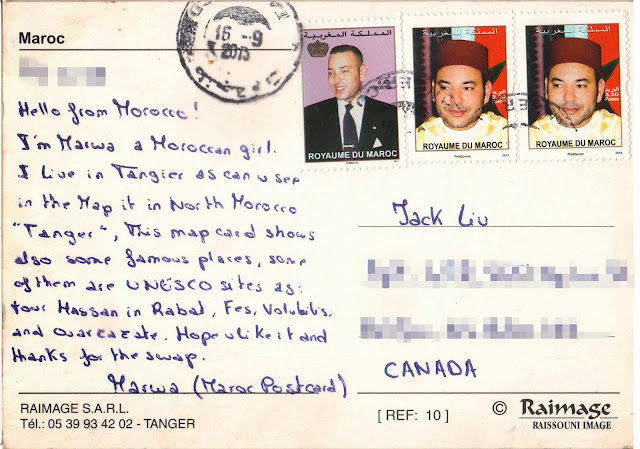 Maroc
16 -9
2013
المملكة المغربية
ROYAUME DU MAROC
المملكة المغربية
3,50
ROYAUME DU MAROC
المملكة المغربية
3,50
Postes
ROYAUME DU MAROC
Hello from Morocco!
I'm Marwa a Moroccan girl.
I live in Tangier as can u see
in the Map it in North Morocco
"Tanger", This map card shows
also some famous places, some
of them are UNESCO sites as:
tour Hassan in Rabat, Fes, Volubilis,
and Ouarzazate. Hope u like it and
thanks for the swap.
Marwa (Maroc Postcard)
Jack Liu
CANADA
RAIMAGE S.A.R.L.
Tél.: 05 39 93 42 02 - TANGER
[ REF: 10 ]
© Raimage
RAISSOUNI IMAGE